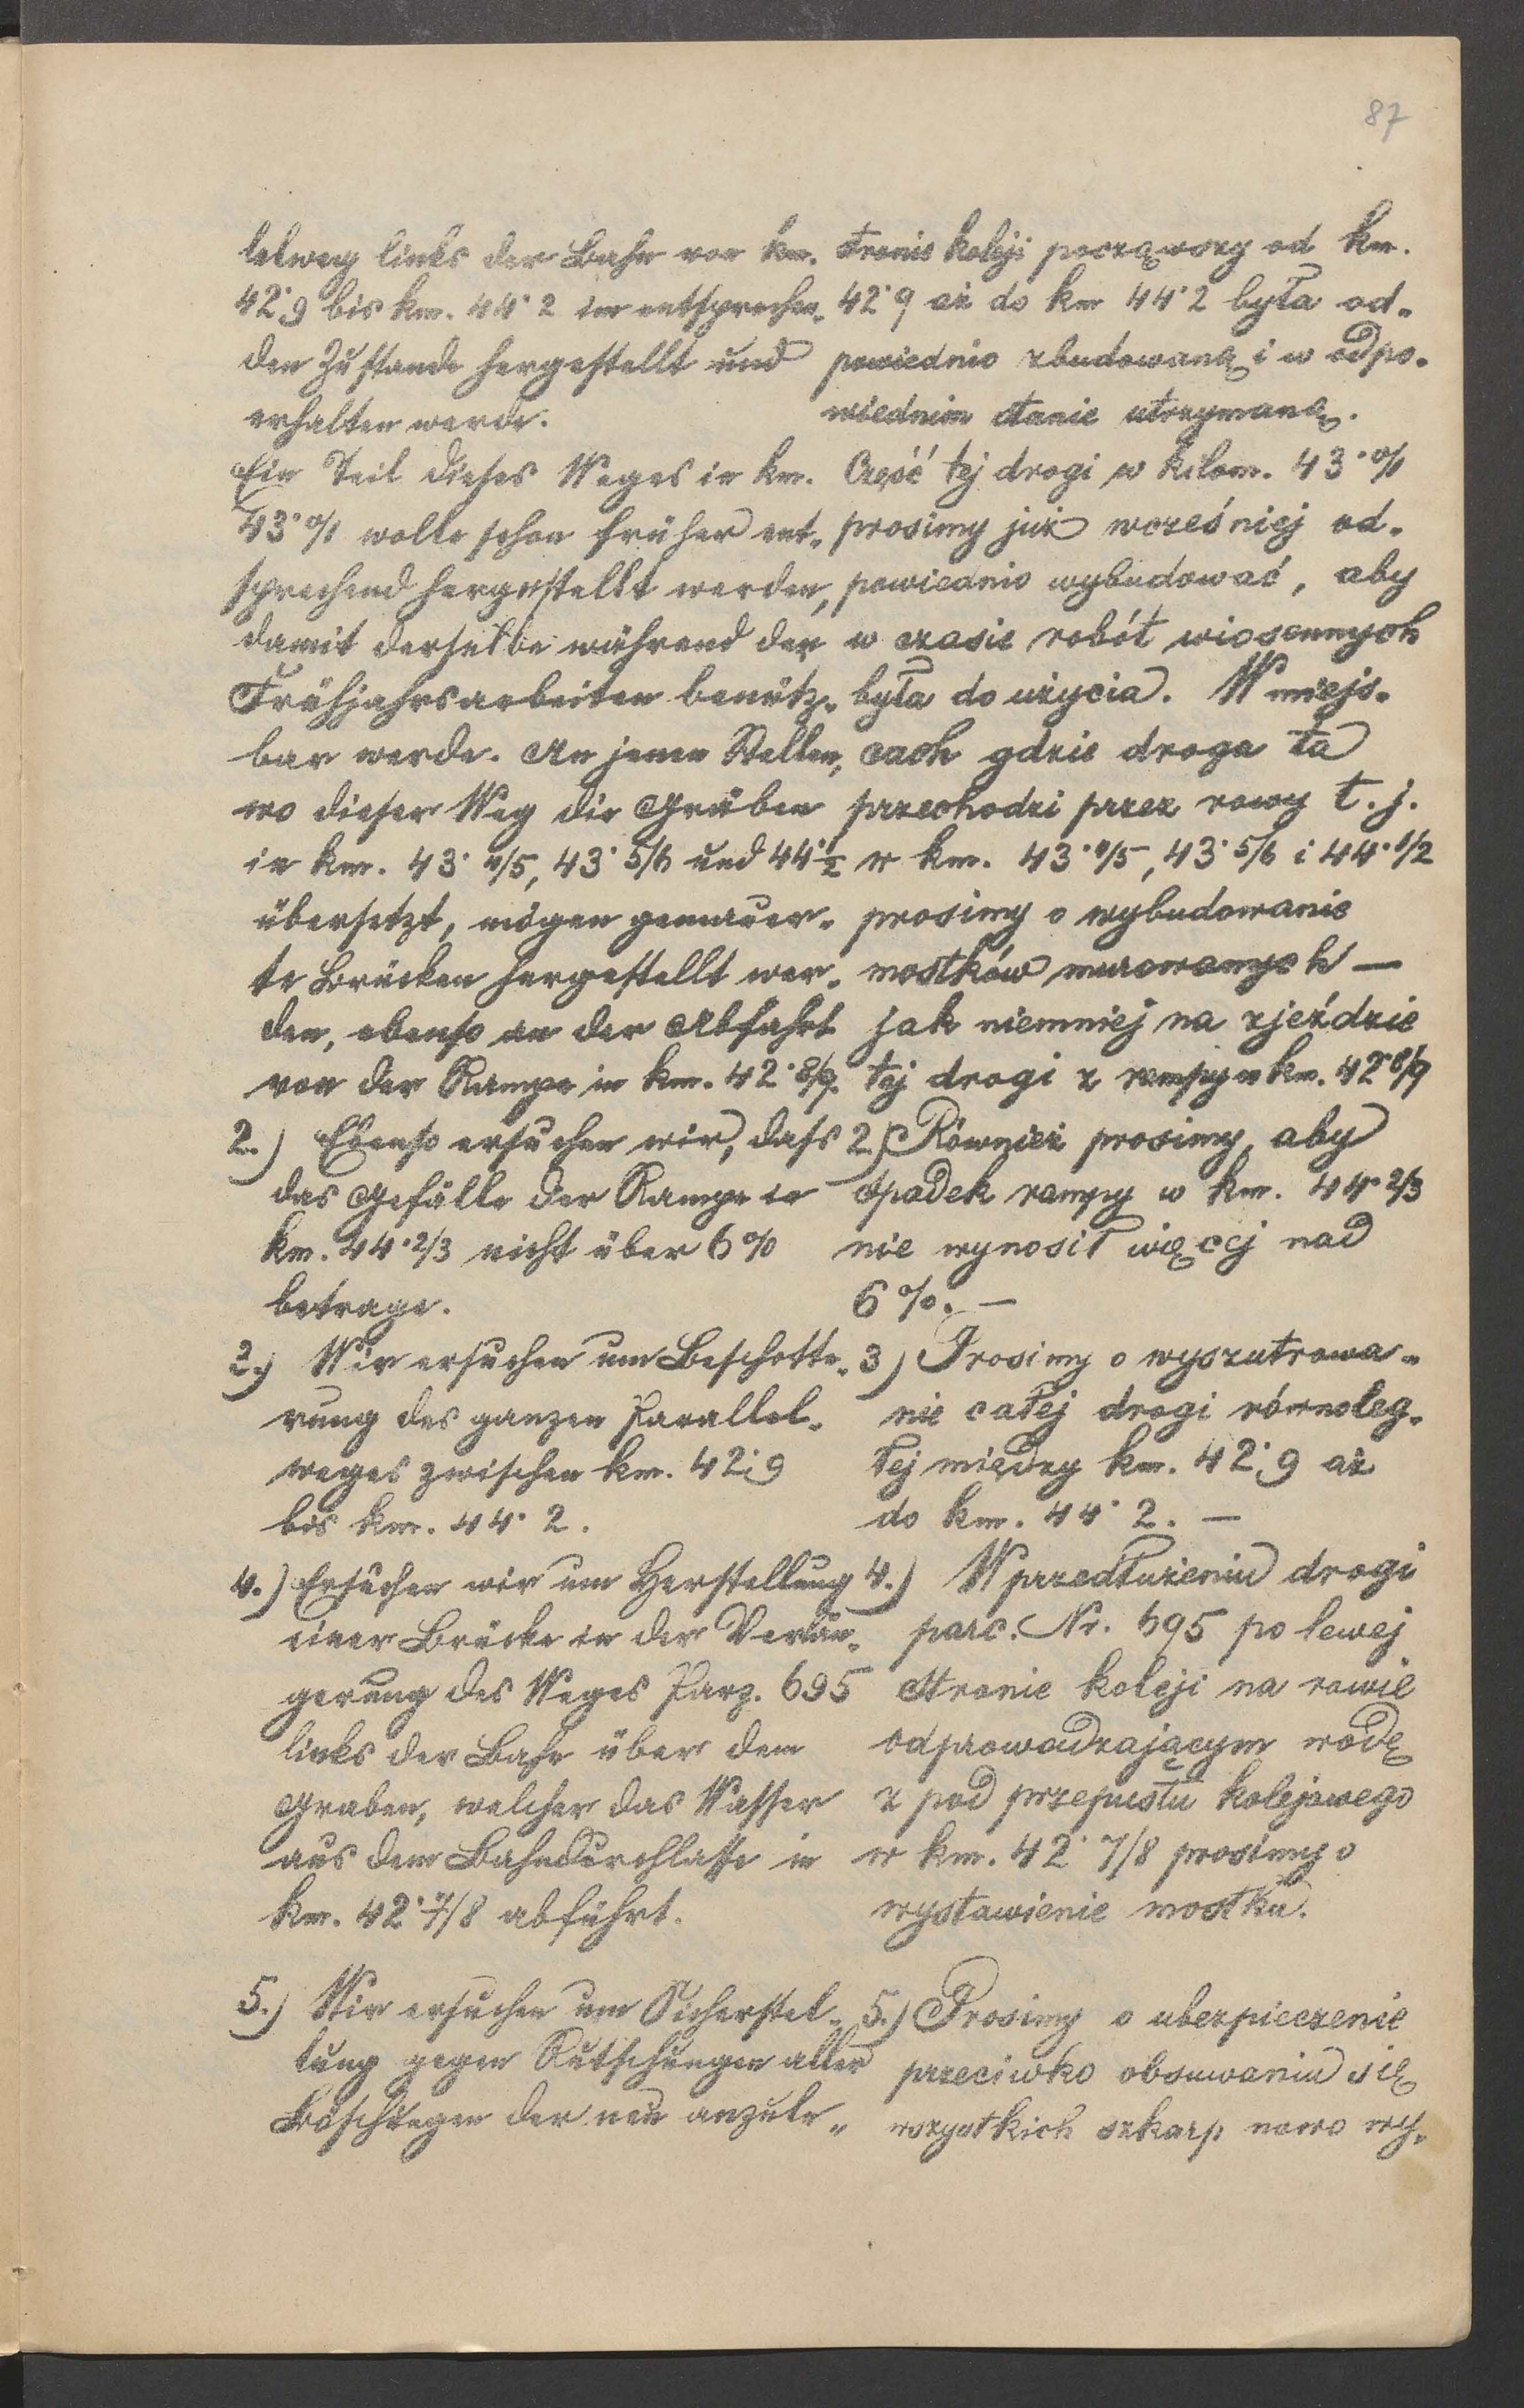 87
lelweg links der Bahn von km.
42·9 bis km. 44·2 im entsprechen„
den Zustande hergestellt und
erhalten werde.
Ein Teil dieses Weges in km.
43·0/1 wolle schon früher ent„
sprechend hergestellt werden,
damit derselbe während der
Frühjahrsarbeiten benütz„
bar werde. An jenen Stellen,
wo dieser Weg die Gräben
in km. 43·4/5, 43·5/6 und 44·1/2
übersetzt, mögen gemauer„
te Brücken hergestellt wer„
den, ebenso an der Abfahrt
von der Rampe in km. 42·8/9.
2.) Ebenso ersuchen wir, dass
das Gefälle der Rampe in
km. 44·2/3 nicht über 6%
betrage.
3.) Wir ersuchen um Beschotte„
rung des ganzen Parallel„
weges zwischen km. 42·9
bis km. 44·2.
4.) Ersuchen wir um Herstellung
einer Brücke in der Verlän„
gerung des Weges Parz. 695
links der Bahn über dem
Graben, welcher das Wasser
aus dem Bahndurchlasse in
km. 42·7/8 abführt.
5.) Wir ersuchen um Sicherstel„
lung gegen Rutschungen aller
Böschungen der neu anzule„
stronie koleji począwszy od km.
42·9 aż do km 44·2 była od„
powiednio zbudowaną i w odpo„
wiednim stanie utrzymaną.
Część tej drogi w kilom. 43·0/1
prosimy już wcześniej od„
powiednio wybudować, aby
w czasie robót wiosennych
była do użycia. W miejs„
cach gdzie droga ta
przechodzi przez rowy t.j.
w km. 43·4/5, 43·5/6 i 44·1/2
prosimy o wybudowanie
mostków murowanych —
jak niemniej na zjeździe
tej drogi z rampy w km. 42·8/9
2.) Również prosimy, aby
spadek rampy w km. 44·2/3
nie wynosił więcej nad
6%. —
3) Prosimy o wyszutrowa„
nie całej drogi równoleg„
łej między km. 42·9 aż
do km. 44·2. —
4.) W przedłużeniu drogi
parc. Nr. 695 po lewej
stronie koleji na rowie
odprowadzającym wodę
z pod przepustu kolejowego
w km. 42·7/8 prosimy o
wystawienie mostku.
5.) Prosimy o ubezpieczenie
przeciwko obsuwaniu się
wszystkich szkarp nowo wy„